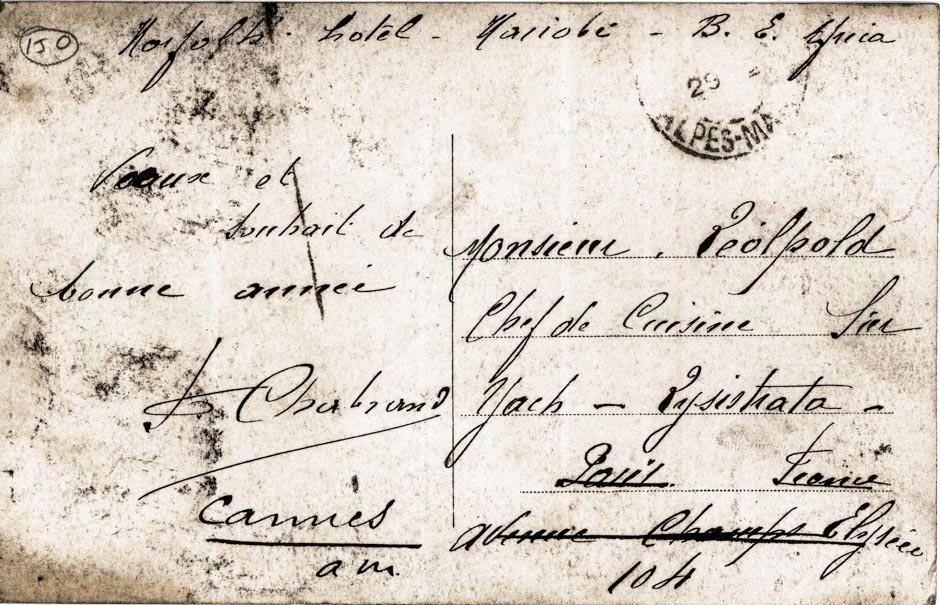 150
Norfolk Hotel - Nairobi - B. E. Africa
29
ALPES-MA
Voeux et
souhait de
bonne année
Chabrand
Cannes
a m.
Monsieur. Léolpold
Chef de Cuisine Sur
Yach - Lysistrata -
Paris. France
avenue Champs Elysée
104